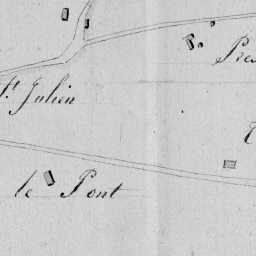 St. Julien
Pres
le Pont